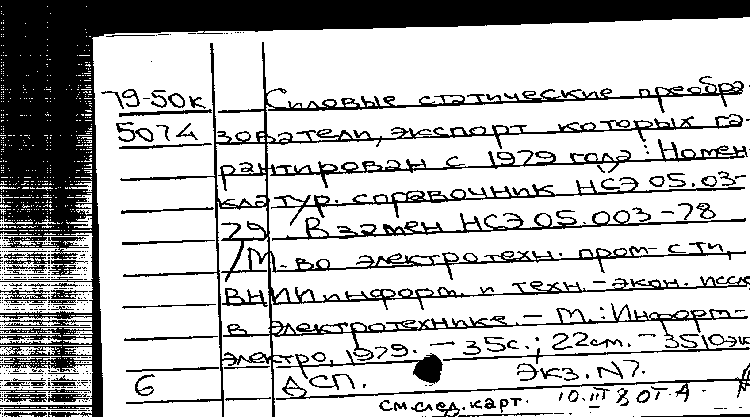 79-50к Силовые статические преобра-
5074 зователи, экспорт которых га-
рантирован с 1979 года: Номен-
клатур. справочник НСЭ 05.03-
79 Взамен НСЭ 05.003-78
/М-во электротехн. пром-сти,
ВНИИ информ. и техн.-экон. иссл
в электротехнике. - М.: Информ-
электро, 1979. - 35с.; 22см. - 3510эк
6 ДСП. Экз. N7.
см. след. карт. 10.III 80г.